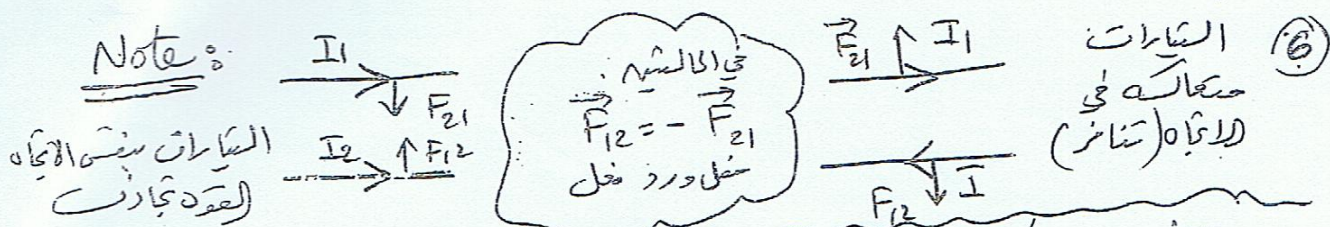 ⑥
التيارات
متعاكسه في
الاتجاه (تنافر)
F⃗21 I1
F12 I
في الحالتين
F⃗12 = - F⃗21
فعل ورد فعل
Note:
I1
F21
I2 F12
التيارات بنفس الاتجاه
القوه تجاذب